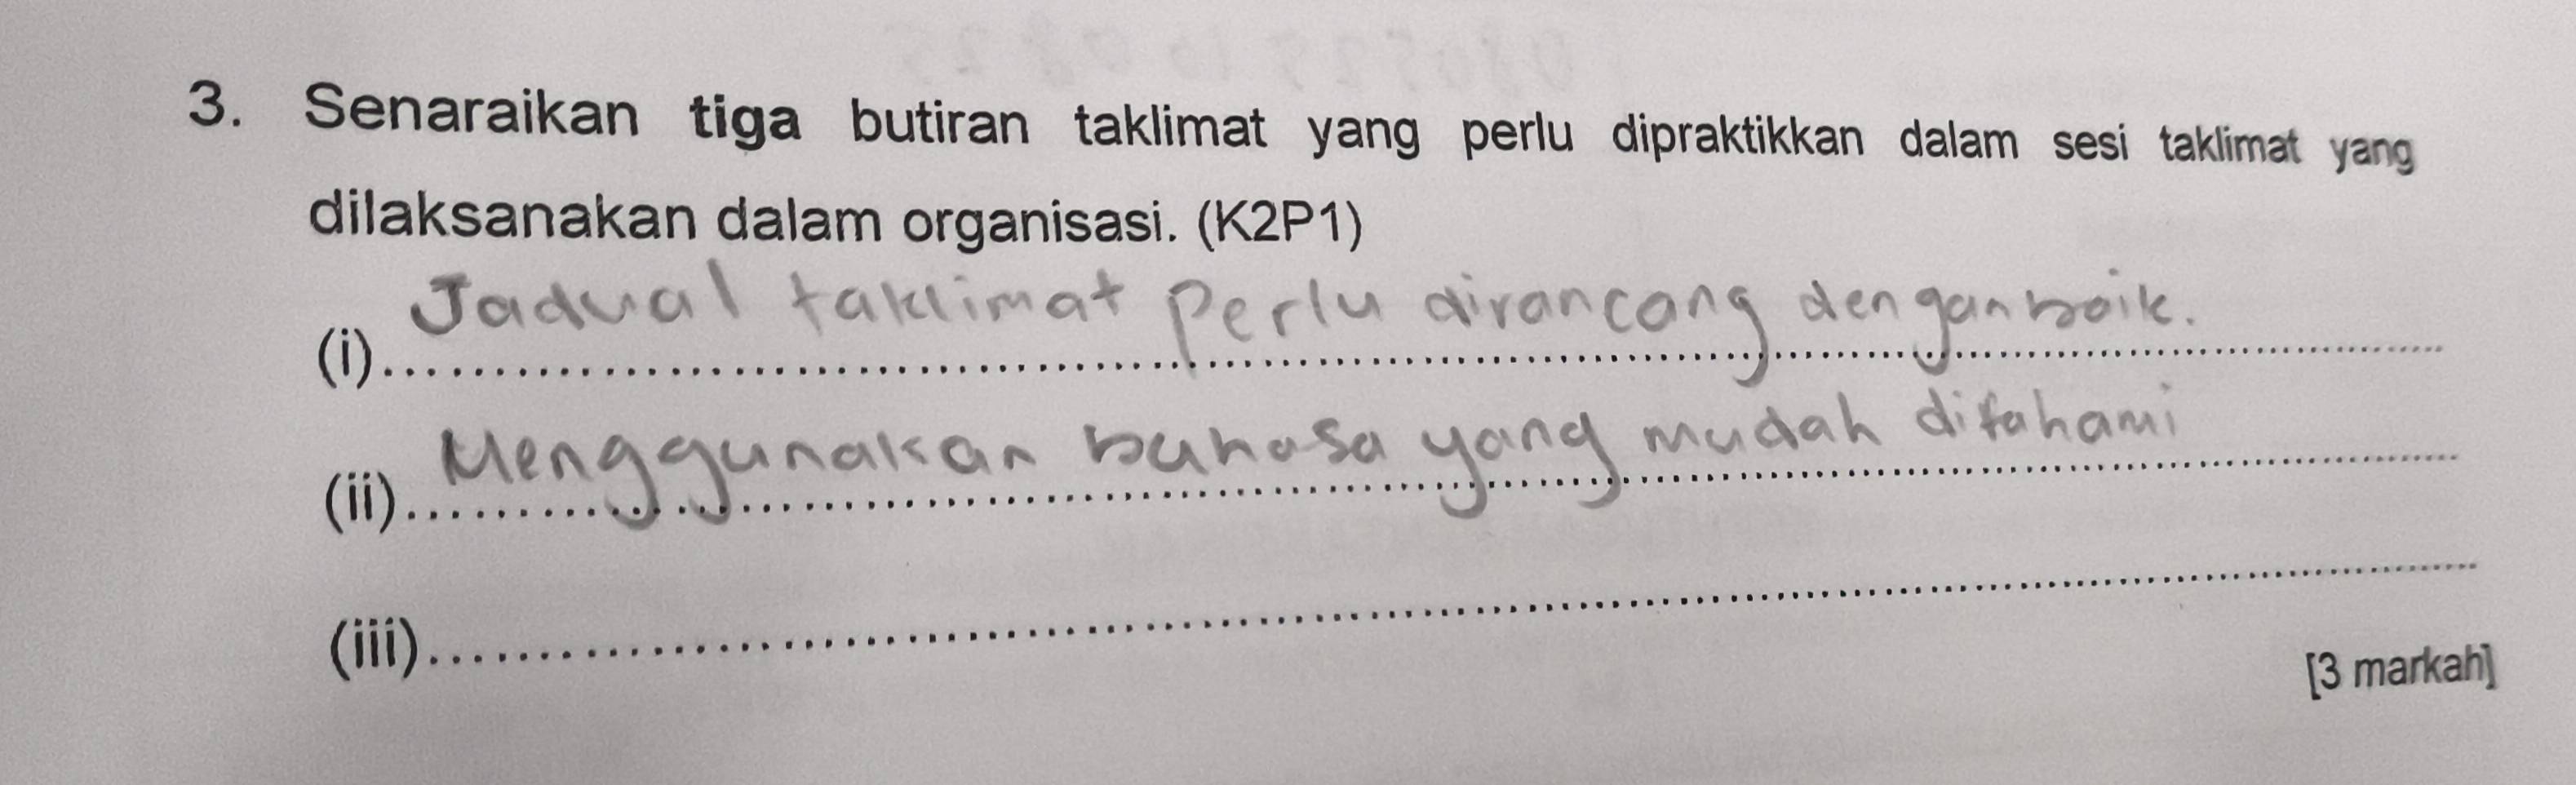 3. Senaraikan tiga butiran taklimat yang perlu dipraktikkan dalam sesi taklimat yang
dilaksanakan dalam organisasi. (K2P1)
(i) Jadual taklimat perlu dirancang dengan baik.
(ii) Menggunakan bahasa yang mudah difahami
(iii)
[3 markah]